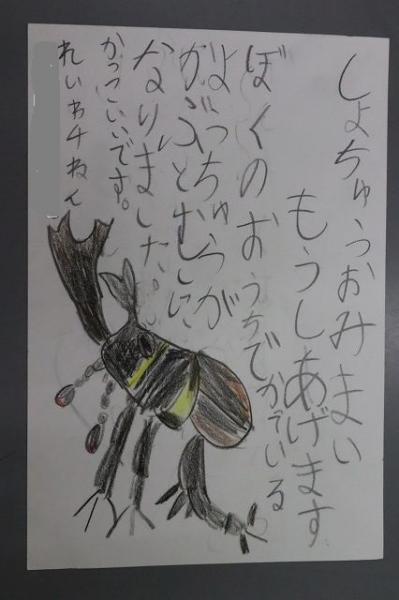 しょちゅうおみまい
もうしあげます
ぼくのおうちでかている
ようちゅうが
かぶとむしに
なりました。
かっこいいです。
れいわ4ねん